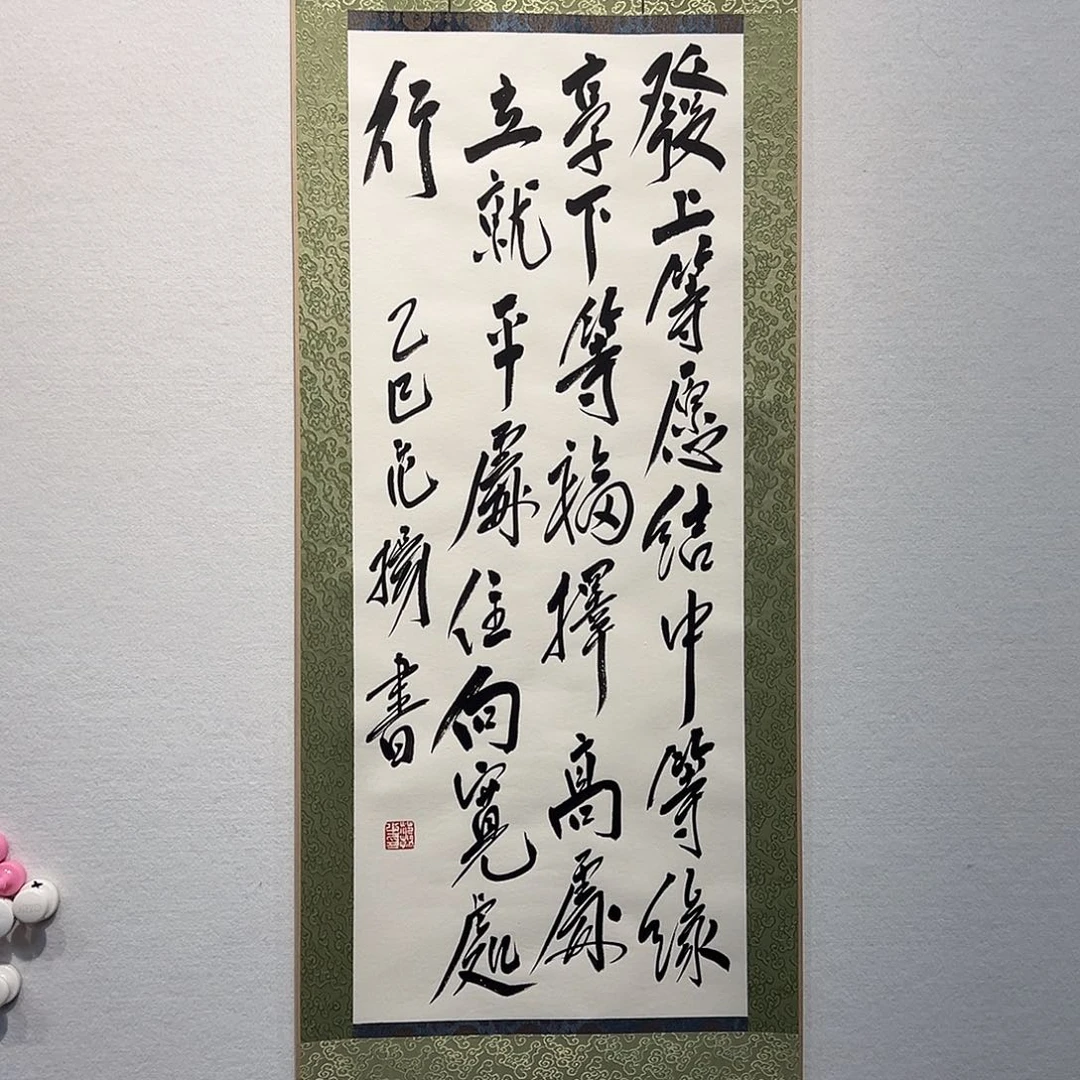 發上等愿結中等緣
享下等福擇高處
立就平處住向寬處
行
乙巳范楊書